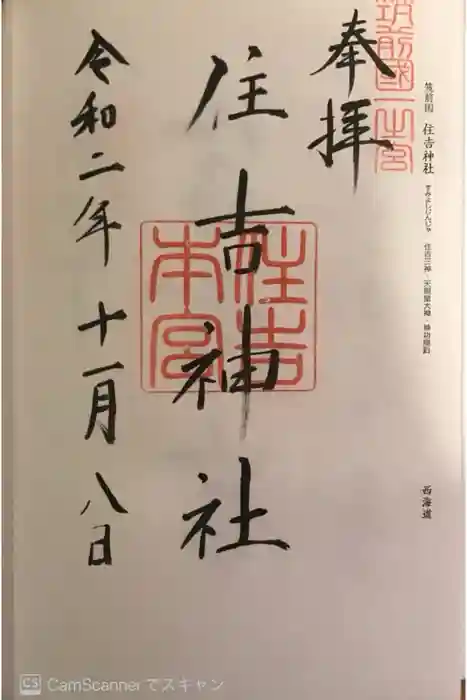 筑前國一之宮
筑前国 住吉神社 すみよしじんじゃ 住吉三神・天照皇大神・神功皇后
西海道
奉拝
住吉神社
住吉本宮
令和二年 十一月 八日
CS CamScannerでスキャン